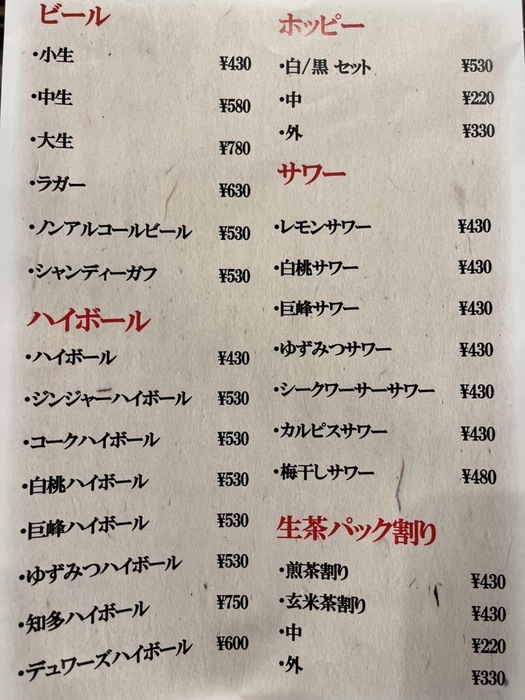 ビール
・小生 ¥430
・中生 ¥580
・大生 ¥780
・ラガー ¥630
・ノンアルコールビール ¥530
・シャンディーガフ ¥530
ハイボール
・ハイボール ¥430
・ジンジャーハイボール ¥530
・コークハイボール ¥530
・白桃ハイボール ¥530
・巨峰ハイボール ¥530
・ゆずみつハイボール ¥530
・知多ハイボール ¥750
・デュワーズハイボール ¥600
ホッピー
・白/黒 セット ¥530
・中 ¥220
・外 ¥330
サワー
・レモンサワー ¥430
・白桃サワー ¥430
・巨峰サワー ¥430
・ゆずみつサワー ¥430
・シークワーサーサワー ¥430
・カルピスサワー ¥430
・梅干しサワー ¥480
生茶パック割り
・煎茶割り ¥430
・玄米茶割り ¥430
・中 ¥220
・外 ¥330